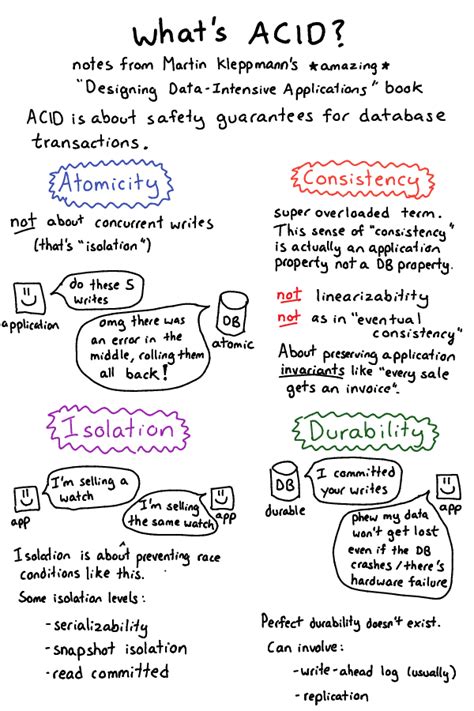 What's ACID?
notes from Martin Kleppmann's *amazing*
"Designing Data-Intensive Applications" book
ACID is about safety guarantees for database
transactions.
Atomicity
not about concurrent writes
(that's "isolation")
do these 5
writes
application
omg there was
an error in the
middle, rolling them
all back!
DB
atomic
Consistency
super overloaded term.
This sense of "consistency"
is actually an application
property not a DB property.
not linearizability
not as in "eventual
consistency"
About preserving application
invariants like "every sale
gets an invoice".
Isolation
I'm selling a
watch
app
I'm selling
the same watch
app
Isolation is about preventing race
conditions like this.
Some isolation levels:
-serializability
-snapshot isolation
-read committed
Durability
DB
durable
I committed
your writes
app
phew my data
won't get lost
even if the DB
crashes/there's
hardware failure
Perfect durability doesn't exist.
Can involve:
-write-ahead log (usually)
-replication